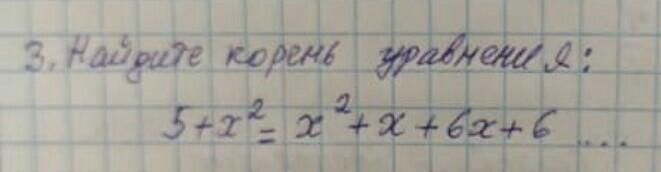 3. Найдите корень уравнения:
5+x²= x²+x+6x+6 ....